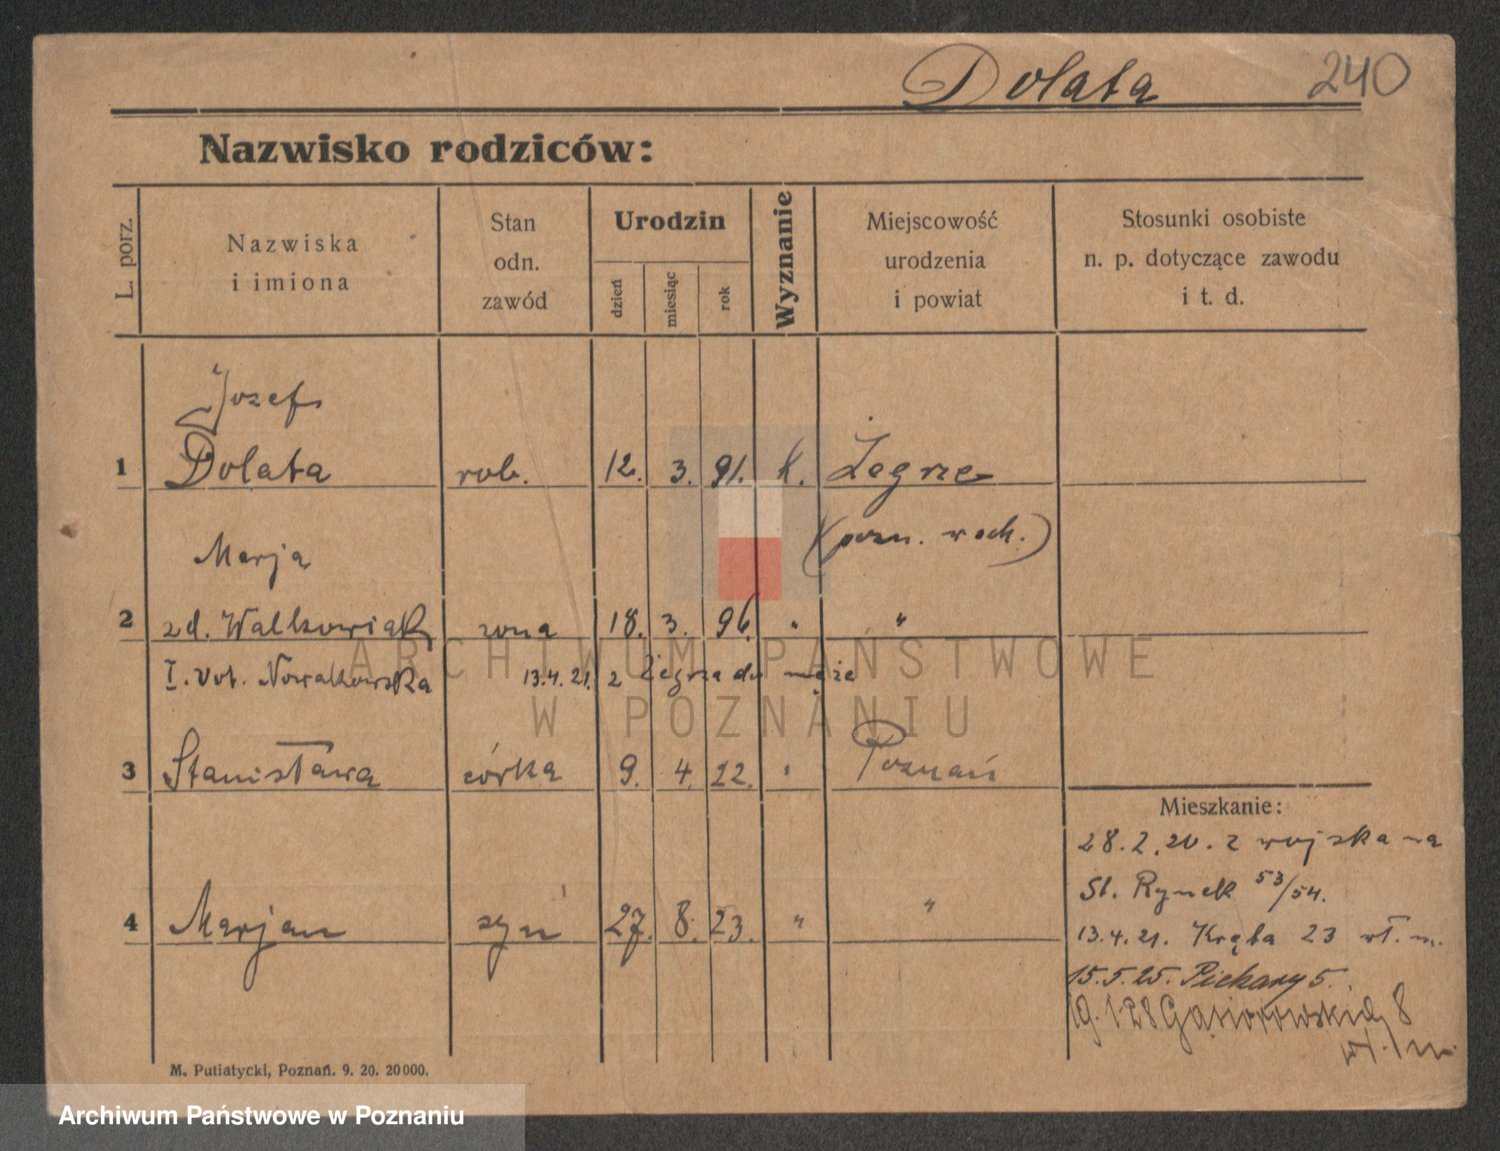 Dolata 240
Nazwisko rodziców:
L. porz.
Nazwiska
i imiona
Stan
odn.
zawód
Urodzin
dzień
miesiąc
rok
Wyznanie
Miejscowość
urodzenia
i powiat
Stosunki osobiste
n. p. dotyczące zawodu
i t. d.
Jozef
1 Dolata rob. 12. 3. 91. k. Żegrze
(pozn. wsch.)
Marja
2 zd. Walkowiak żona 18. 3. 96. " "
I. vot. Nowakowska 13.4.21. z Żegrza do męża
3 Stanisława córka 9. 4. 22. " Poznań
4 Marjan syn 27. 8. 23. " "
Mieszkanie:
28.2.20. z wojska na
St. Rynek 53/54.
13.4.21. Kręta 23 wł. m.
15.5.25. Piekary 5.
19.1.28 Gąsiorowskich 8
wł. m.
M. Putiatycki, Poznań. 9. 20. 20000.
ARCHIWUM PAŃSTWOWE
W POZNANIU
Archiwum Państwowe w Poznaniu